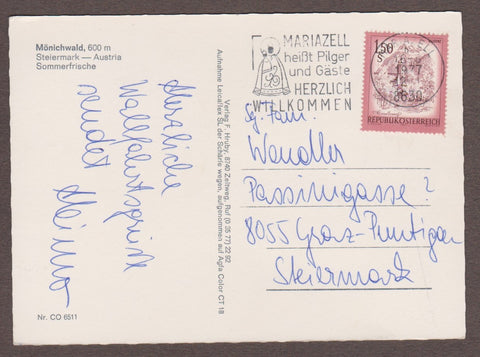 Mönichwald, 600 m
Steiermark — Austria
Sommerfrische
Herzliche
Wallfahrtsgrüße
sendet
Nr. CO 6511
Verlag F. Hruby, 8740 Zeltweg, Ruf (0 35 77) 22 92
Aufnahme Leicaflex SL der Schärfe wegen, aufgenommen auf Agfa Color CT 18
MARIAZELL
heißt Pilger
und Gäste
HERZLICH
WILLKOMMEN
1977
8630
1.50
S
REPUBLIK ÖSTERREICH
Sg. Fam.
Wendler
Passinigasse ?
8055 Graz-Puntigam
Steiermark